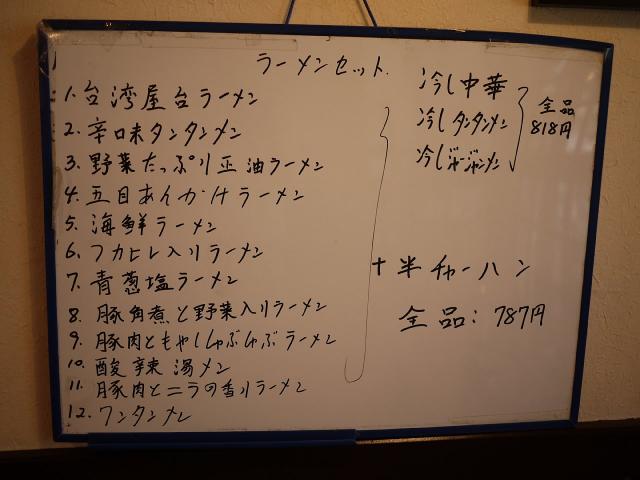 ラーメンセット
1. 台湾屋台ラーメン
2. 辛口味タンタンメン
3. 野菜たっぷり正油ラーメン
4. 五目あんかけラーメン
5. 海鮮ラーメン
6. フカヒレ入りラーメン
7. 青葱塩ラーメン
8. 豚角煮と野菜入りラーメン
9. 豚肉ともやししゃぶしゃぶラーメン
10. 酸辣湯メン
11. 豚肉とニラの香りラーメン
12. ワンタンメン
冷し中華
冷しタンタンメン
冷しジャージャンメン
全品
818円
+半チャーハン
全品：787円